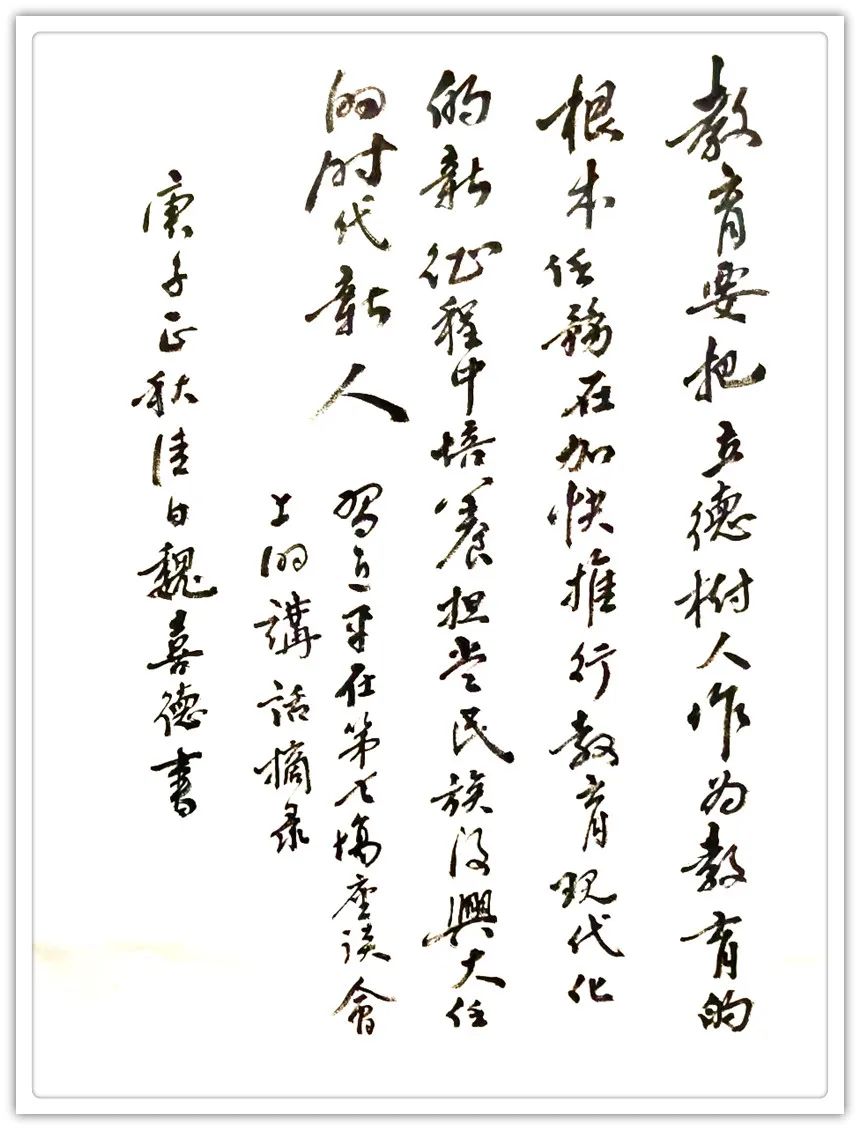 教育要把立德樹人作为教育的
根本任務在加快推行教育现代化
的新征程中培養担当民族復興大任
的时代新人
習近平在第七場座谈會
上的講話摘录
庚子正秋佳日魏喜德書